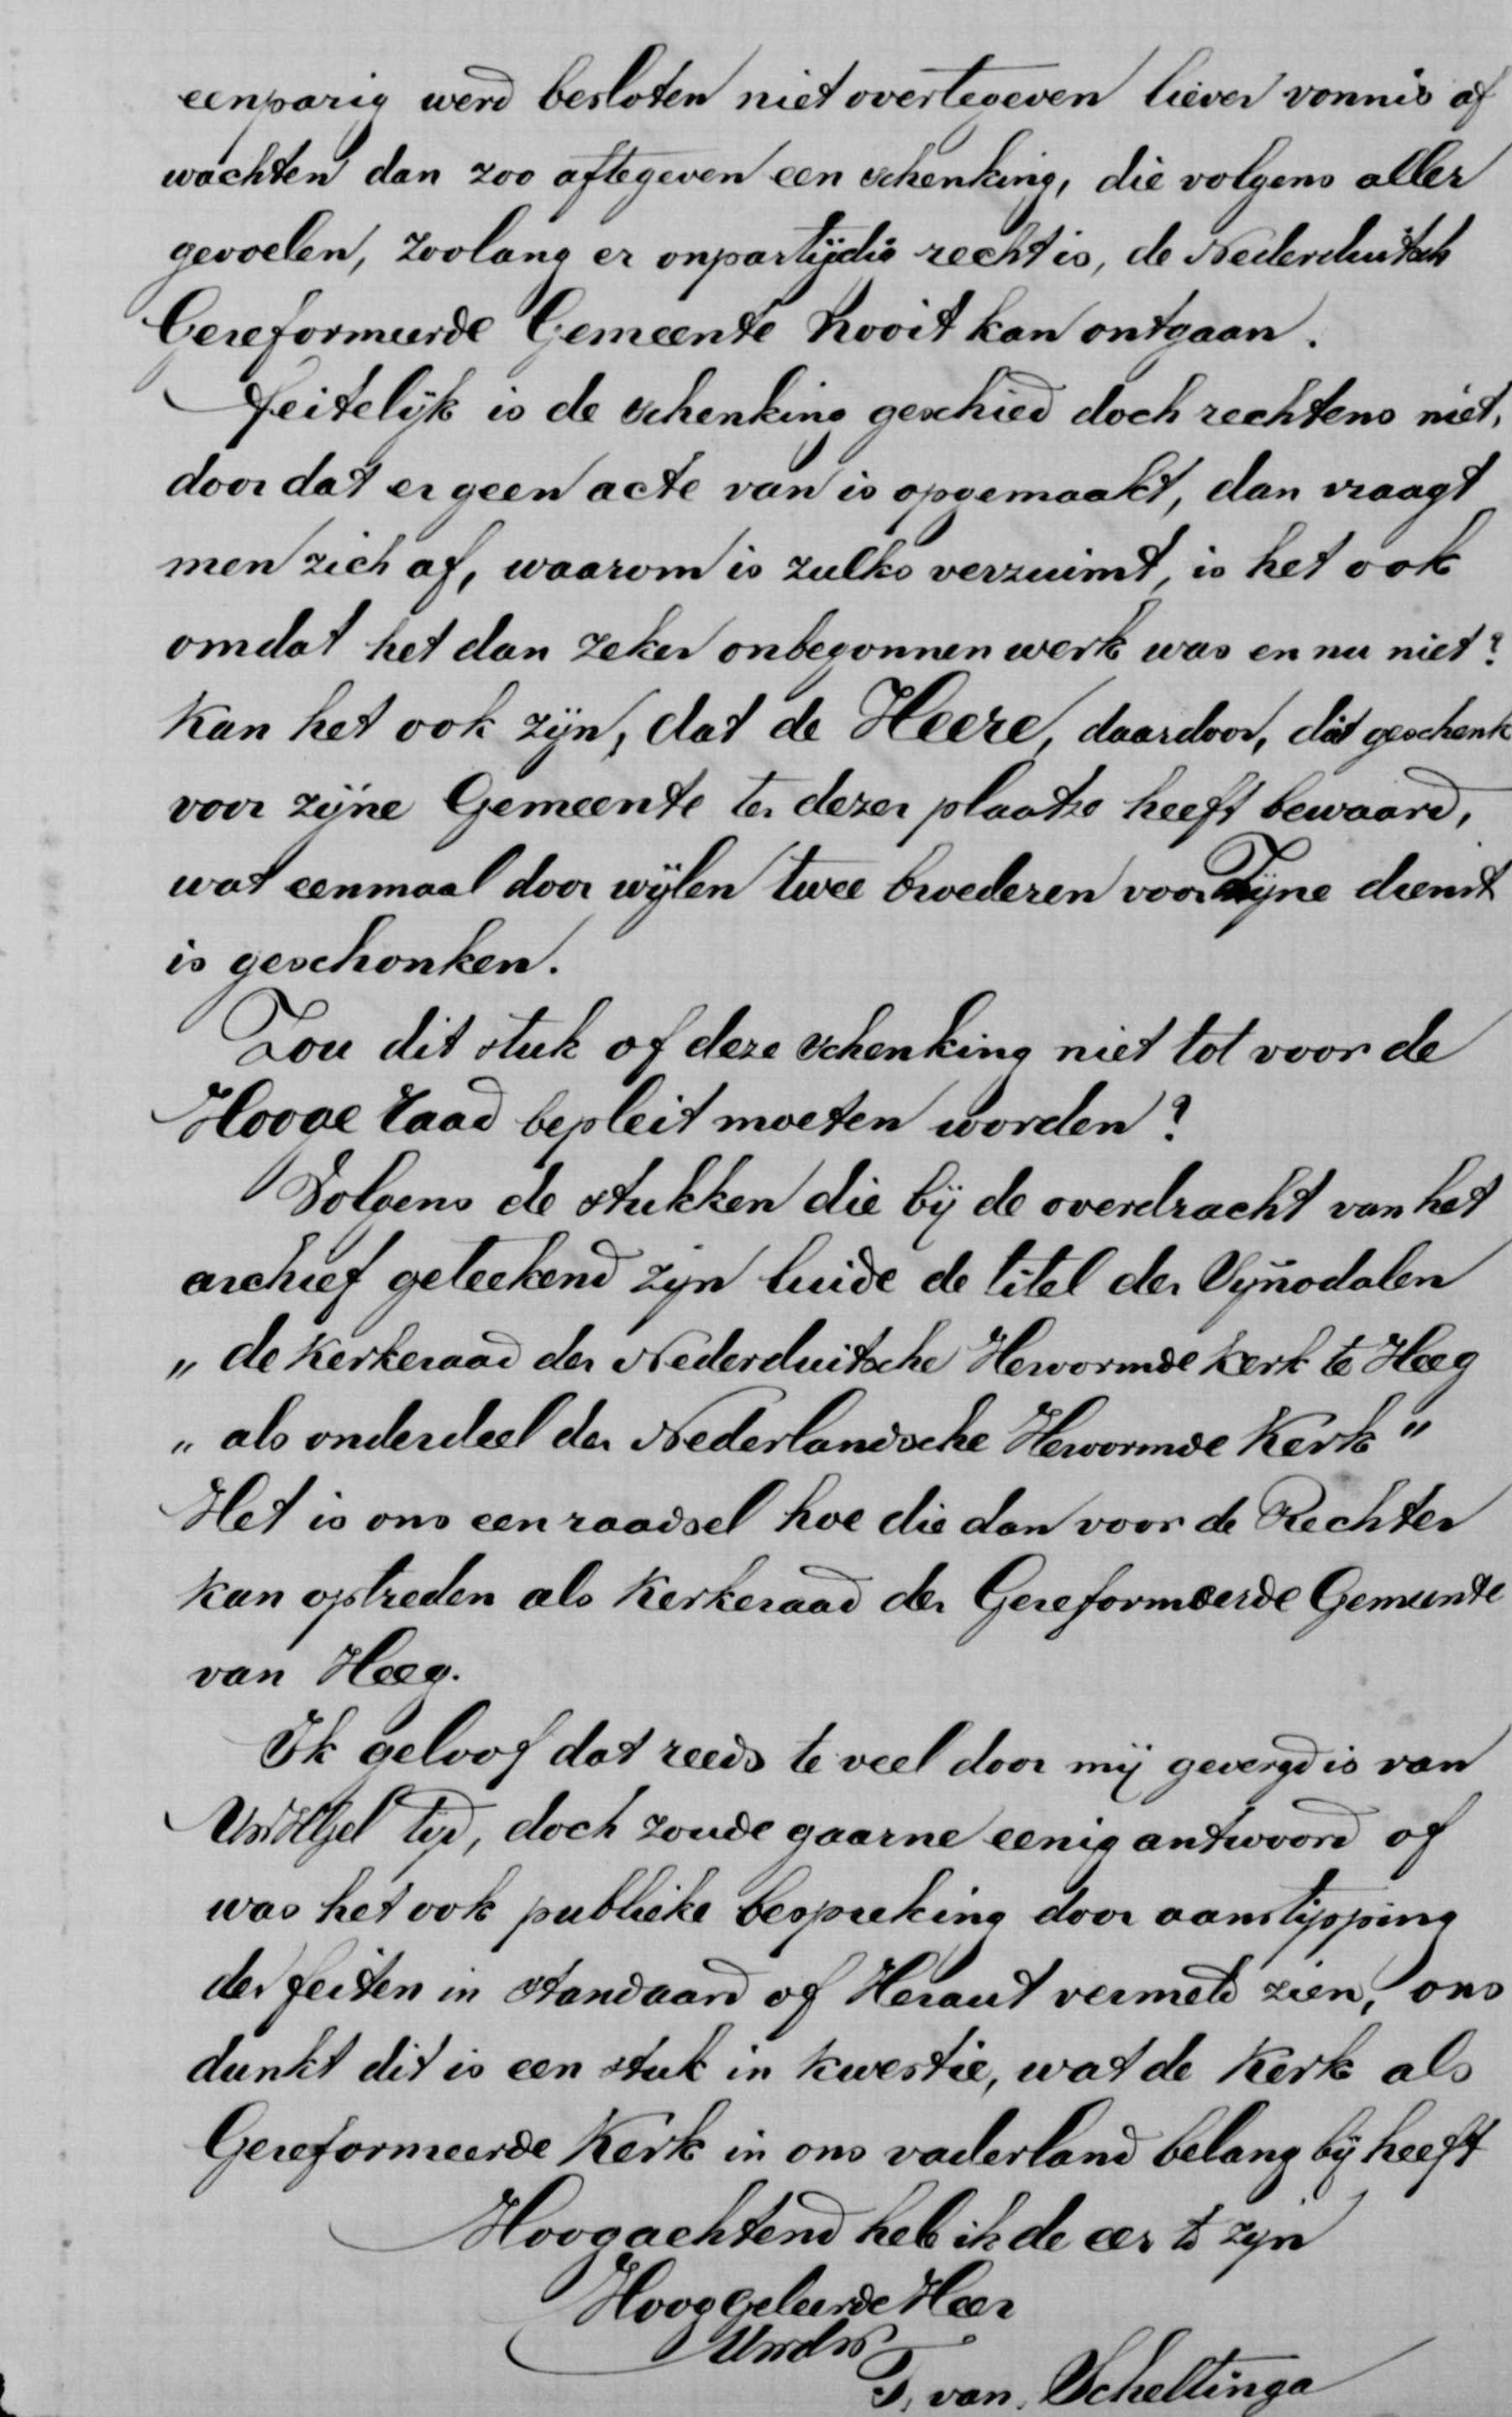 eenparig werd besloten niet overtegeven liever vonnis af
wachten dan zoo aftegeven een schenking, die volgens aller
gevoelen, zoolang er onpartijdig recht is, de Nederduitsch
Gereformeerde Gemeente nooit kan ontgaan.
feitelijk is de schenking geschied doch rechtens niet,
door dat er geen acte van is opgemaakt, dan vraagt
men zich af, waarom is zulks verzuimt, is het ook
omdat het dan zeker onbegonnen werk was en nu niet?
Kan het ook zijn, dat de Heere, daardoor, dat geschenk
voor zijne Gemeente te dezer plaatse heeft bewaard,
wat eenmaal door wijlen twee broederen voor Zijne dienst
is geschonken.
Zou dit stuk of deze schenking niet tot voor de
Hooge raad bepleit moeten worden?
Volgens de stukken die bij de overdracht van het
archief geteekend zijn luide de titel der Synodalen
„ de Kerkeraad der Nederduitsche Hervormde Kerk te Heeg
„ als onderdeel der Nederlandsche Hervormde Kerk"
Het is ons een raadsel hoe die dan voor de Rechter
kan optreden als Kerkeraad der Gereformeerde Gemeente
van Heeg.
Ik geloof dat reeds te veel door mij gevergd is van
UwHGel tijd, doch zoude gaarne eenig antwoord of
was het ook publieke bespreking door aanstipping
der feiten in Standaard of Heraut vermeld zien, ons
dunkt dit is een stuk in kwestie, wat de Kerk als
Gereformeerde Kerk in ons vaderland belang bij heeft
Hoogachtend heb ik de eer te zijn
Hooggeleerde Heer
Uwdw
T. van Scheltinga